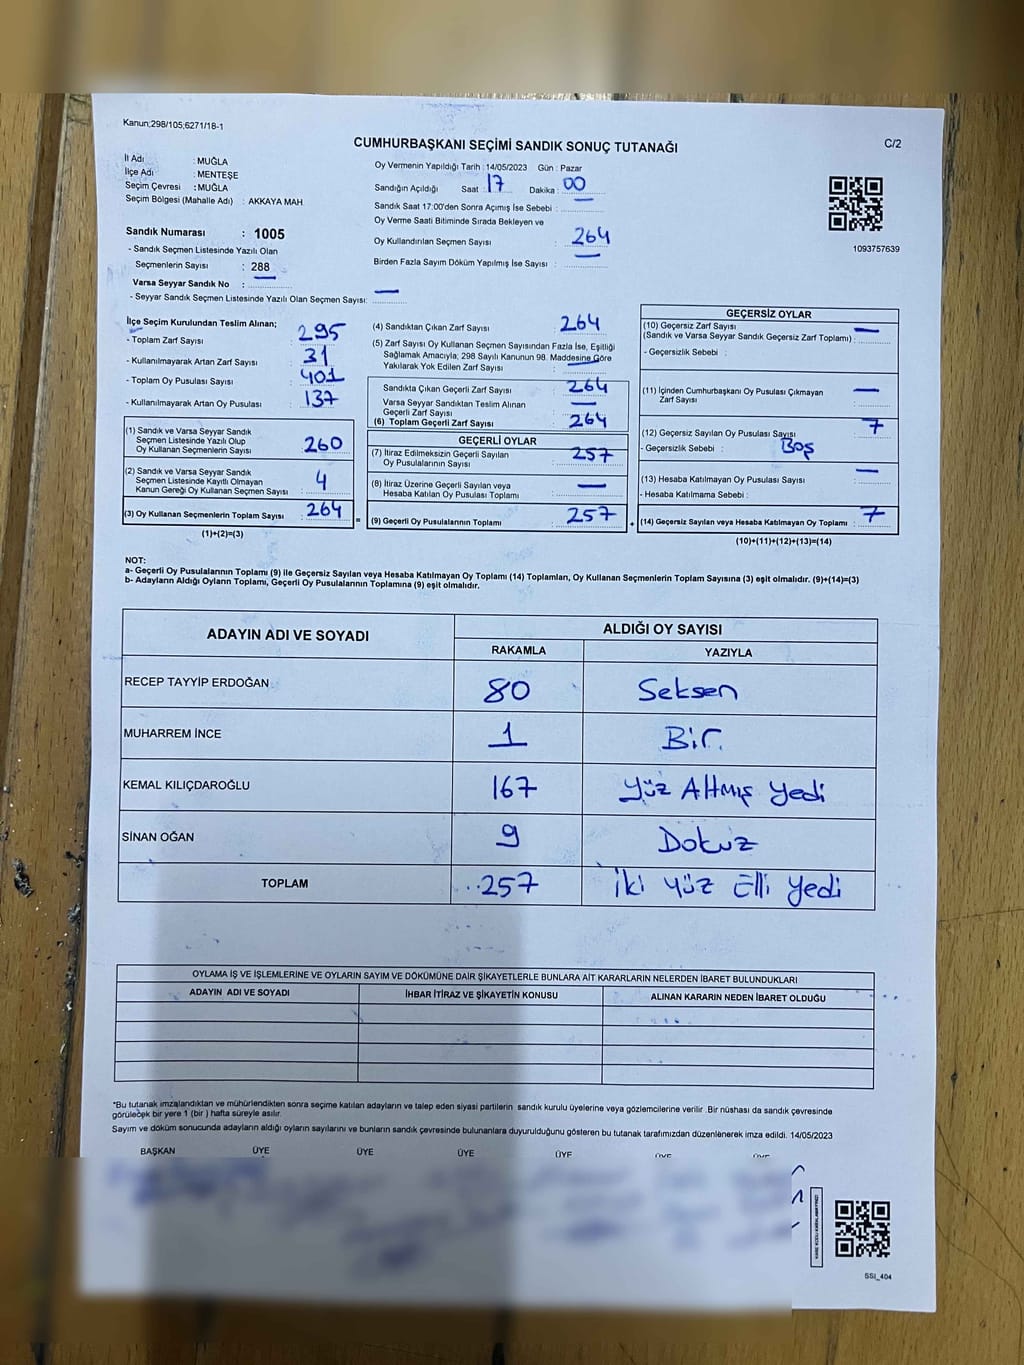 Kanun;298/105;6271/18-1
C/2
CUMHURBAŞKANI SEÇİMİ SANDIK SONUÇ TUTANAĞI
İl Adı : MUĞLA
İlçe Adı : MENTEŞE
Seçim Çevresi : MUĞLA
Seçim Bölgesi (Mahalle Adı) : AKKAYA MAH.
Sandık Numarası : 1005
- Sandık Seçmen Listesinde Yazılı Olan
Seçmenlerin Sayısı : 288
Varsa Seyyar Sandık No :
- Seyyar Sandık Seçmen Listesinde Yazılı Olan Seçmen Sayısı:
Oy Vermenin Yapıldığı Tarih : 14/05/2023 Gün : Pazar
Sandığın Açıldığı Saat : 17 Dakika : 00
Sandık Saat 17:00'den Sonra Açımış İse Sebebi :
Oy Verme Saati Bitiminde Sırada Bekleyen ve
Oy Kullandırılan Seçmen Sayısı : 264
Birden Fazla Sayım Döküm Yapılmış İse Sayısı :
1093757639
İlçe Seçim Kurulundan Teslim Alınan;
- Toplam Zarf Sayısı : 295
- Kullanılmayarak Artan Zarf Sayısı : 31
- Toplam Oy Pusulası Sayısı : 401
- Kullanılmayarak Artan Oy Pusulası : 137
(1) Sandık ve Varsa Seyyar Sandık
Seçmen Listesinde Yazılı Olup
Oy Kullanan Seçmenlerin Sayısı : 260
(2) Sandık ve Varsa Seyyar Sandık
Seçmen Listesinde Kayıtlı Olmayan
Kanun Gereği Oy Kullanan Seçmen Sayısı : 4
(3) Oy Kullanan Seçmenlerin Toplam Sayısı : 264
(1)+(2)=(3)
(4) Sandıktan Çıkan Zarf Sayısı : 264
(5) Zarf Sayısı Oy Kullanan Seçmen Sayısından Fazla İse, Eşitliği
Sağlamak Amacıyla; 298 Sayılı Kanunun 98. Maddesine Göre
Yakılarak Yok Edilen Zarf Sayısı :
Sandıkta Çıkan Geçerli Zarf Sayısı : 264
Varsa Seyyar Sandıktan Teslim Alınan
Geçerli Zarf Sayısı :
(6) Toplam Geçerli Zarf Sayısı : 264
GEÇERLİ OYLAR
(7) İtiraz Edilmeksizin Geçerli Sayılan
Oy Pusulalarının Sayısı : 257
(8) İtiraz Üzerine Geçerli Sayılan veya
Hesaba Katılan Oy Pusulası Toplamı :
= (9) Geçerli Oy Pusulalarının Toplamı : 257
GEÇERSİZ OYLAR
(10) Geçersiz Zarf Sayısı
(Sandık ve Varsa Seyyar Sandık Geçersiz Zarf Toplamı) :
- Geçersizlik Sebebi :
(11) İçinden Cumhurbaşkanı Oy Pusulası Çıkmayan
Zarf Sayısı :
(12) Geçersiz Sayılan Oy Pusulası Sayısı : 7
- Geçersizlik Sebebi : Boş
(13) Hesaba Katılmayan Oy Pusulası Sayısı :
- Hesaba Katılmama Sebebi :
+ (14) Geçersiz Sayılan veya Hesaba Katılmayan Oy Toplamı : 7
(10)+(11)+(12)+(13)=(14)
NOT:
a- Geçerli Oy Pusulalarının Toplamı (9) ile Geçersiz Sayılan veya Hesaba Katılmayan Oy Toplamı (14) Toplamları, Oy Kullanan Seçmenlerin Toplam Sayısına (3) eşit olmalıdır. (9)+(14)=(3)
b- Adayların Aldığı Oyların Toplamı, Geçerli Oy Pusulalarının Toplamına (9) eşit olmalıdır.
ADAYIN ADI VE SOYADI ALDIĞI OY SAYISI
RAKAMLA YAZIYLA
RECEP TAYYİP ERDOĞAN 80 Seksen
MUHARREM İNCE 1 Bir.
KEMAL KILIÇDAROĞLU 167 Yüz Altmış Yedi
SİNAN OĞAN 9 Dokuz
TOPLAM 257 İki Yüz Elli Yedi
OYLAMA İŞ VE İŞLEMLERİNE VE OYLARIN SAYIM VE DÖKÜMÜNE DAİR ŞİKAYETLERLE BUNLARA AİT KARARLARIN NELERDEN İBARET BULUNDUKLARI
ADAYIN ADI VE SOYADI İHBAR İTİRAZ VE ŞİKAYETİN KONUSU ALINAN KARARIN NEDEN İBARET OLDUĞU
*Bu tutanak imzalandıktan ve mühürlendikten sonra seçime katılan adayların ve talep eden siyasi partilerin sandık kurulu üyelerine veya gözlemcilerine verilir .Bir nüshası da sandık çevresinde
görülecek bir yere 1 (bir ) hafta süreyle asılır.
Sayım ve döküm sonucunda adayların aldığı oyların sayılarını ve bunların sandık çevresinde bulunanlara duyurulduğunu gösteren bu tutanak tarafımızdan düzenlenerek imza edildi. 14/05/2023
BAŞKAN ÜYE ÜYE ÜYE ÜYE ÜYE ÜYE
SSI_404